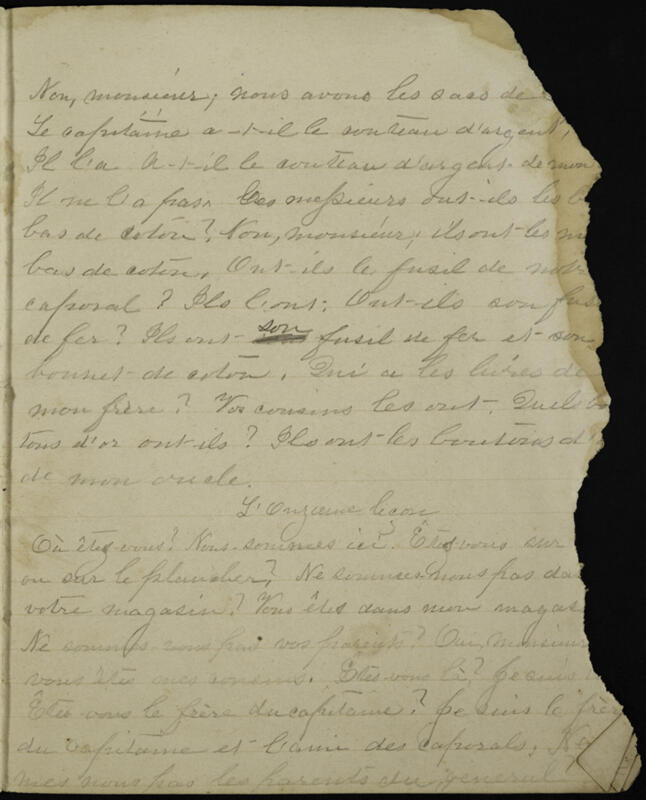 Non, monsiéur; nous avons les sacs de
Le capitaîne a-t-il le couteau d'argent,
Il l'a A-t-il le couteau d'argent de mon
Il ne l'a pas. Les messieurs ont-ils les b
bas de cotôn? Non, monsiéur; ils ont les m
bas de cotôn. Ont-ils le fusil de notre
caporal? Ils l'ont. Ont-ils son fus
de fer? Ils ont son fusil de fer et son
bonnet de cotôn. Qui a les livres de
mon frère? Vos cousins les ont. Quels bo
tons d'or ont-ils? Ils ont les boutons d'
de mon oncle.
L'Onzième leçon
Où êtes-vous? Nous sommes ici. Êtes-vous sur
ou sur le plancher? Ne sommes-nous pas da
votre magasin? Vous êtes dans mon magas
Ne sommes-nous pas vos parents? Oui, monsieur
vous êtes mes cousins. Êtes-vous là? Je suis
Êtes-vous le frère du capitaîne? Je suis le frèr
du capitaîne et l'ami des caporals. Ne
mes nous pas les parents du general